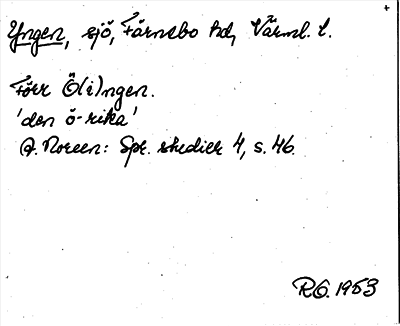 Yngen, sjö, Färnebo hd, Värml. l.
Förr Ö(i)ngen.
'den ö-rika'
A. Noreen: Spr. studier 4, s. 46.
RO. 1953